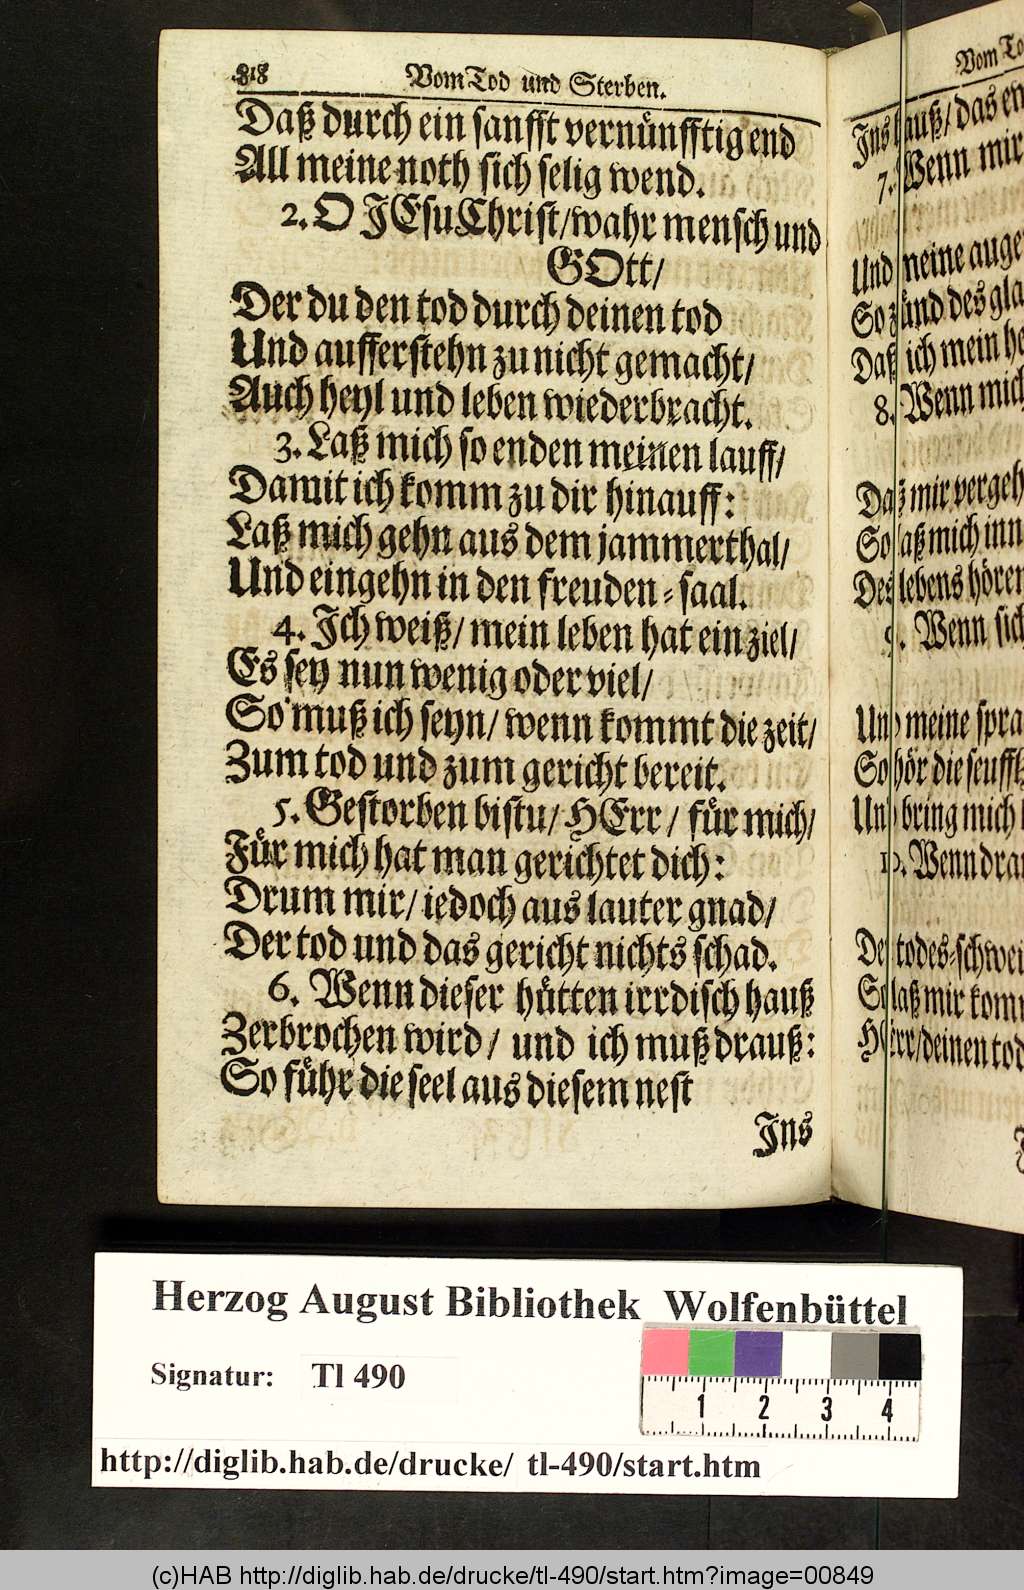 818 Vom Tod und Sterben.
Daß durch ein sanfft vernünfftig end
All meine noth sich selig wend.
2. O JEsu Christ/ wahr mensch und
GOtt/
Der du den tod durch deinen tod
Und aufferstehn zu nicht gemacht/
Auch heyl und leben wiederbracht.
3. Laß mich so enden meinen lauff/
Damit ich komm zu dir hinauff:
Laß mich gehn aus dem jammerthal/
Und eingehn in den freuden-saal.
4. Ich weiß/ mein leben hat ein ziel/
Es sey nun wenig oder viel/
So muß ich seyn/ wenn kommt die zeit/
Zum tod und zum gericht bereit.
5. Gestorben bistu/ HErr/ für mich/
Für mich hat man gerichtet dich:
Drum mir/ iedoch aus lauter gnad/
Der tod und das gericht nichts schad.
6. Wenn dieser hütten irrdisch hauß
Zerbrochen wird/ und ich muß drauß:
So führ die seel aus diesem nest
Ins
Vom To
Ins hauß/ das en
7. Wenn mir
Und meine auge
So zünd des gla
Daß ich mein he
8. Wenn mich
Daß mir vergeh
So laß mich inn
Des lebens hören
9. Wenn sich
Und meine spra
So hör die seufftz
Und bring mich
10. Wenn dran
Der todes-schwei
So laß mir kom
HErr/ deinen tod
Herzog August Bibliothek Wolfenbüttel
Signatur: Tl 490
1 2 3 4
http://diglib.hab.de/drucke/ tl-490/start.htm
(c)HAB http://diglib.hab.de/drucke/tl-490/start.htm?image=00849